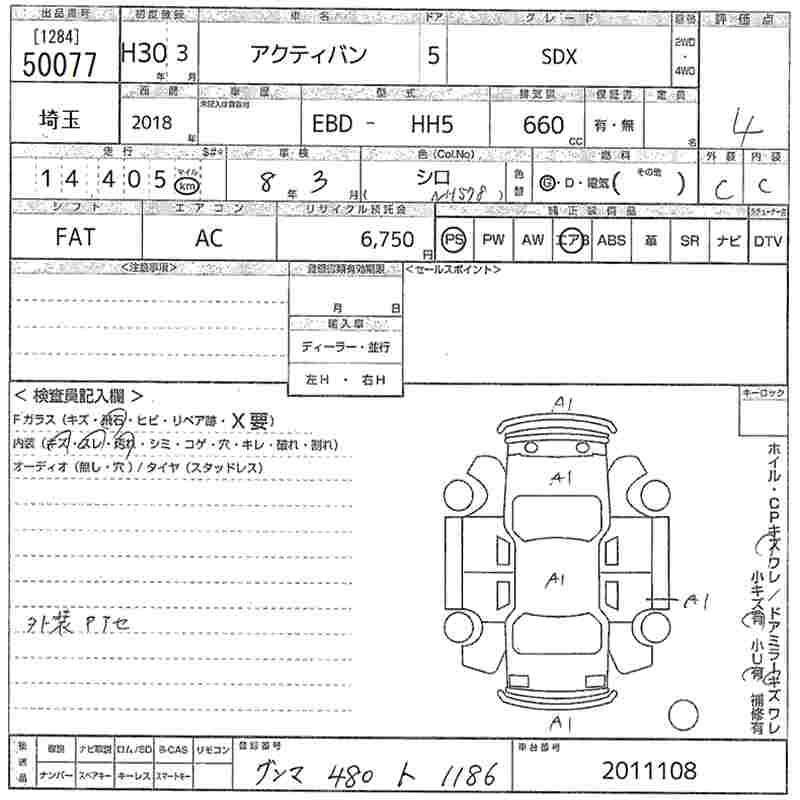 出品番号 初度登録 車名 ドア グレード 駆動 評価点
[1284]
50077 H30年 3月 アクティバン 5 SDX 2WD・4WD 4
西暦 車歴 型式 排気量 保証書 定員
埼玉 2018年 EBD - HH5 660cc 有・無 名
走行 車検 色(Col.No) 色替 燃料 外装 内装
14 405 マイル km 8年 3月 シロ (NH578) G・D・電気( その他 ) C C
シフト エアコン リサイクル預託金 純正装備品
FAT AC 6,750円 PS PW AW エアB ABS 革 SR ナビ DTV
<注意事項> 登録書類有効期限 <セールスポイント>
月 日
輸入車
ディーラー・並行
左H ・ 右H
< 検査員記入欄 > キーロック
Fガラス (キズ・飛石・ヒビ・リペア跡・X要)
内装 (キズ・スレ・汚れ・シミ・コゲ・穴・キレ・破れ・割れ)
オーディオ (無し・穴) / タイヤ (スタッドレス)
外装 PTセ
A1
A1
A1
A1
A1
ホイル・CPキズワレ / ドアミラーキズワレ
小キズ有 小U有 補修有
後送品 取説 ナビ取説 ロム/SD B-CAS リモコン 登録番号 車台番号
ナンバー スペアキー キーレス スマートキー グンマ 480 ト 1186 2011108